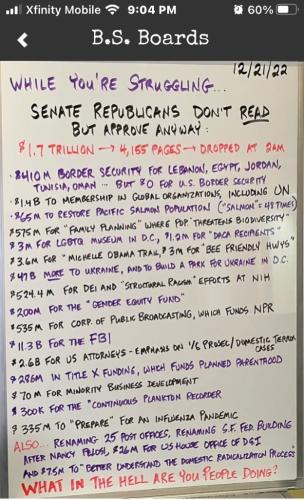 Xfinity Mobile 9:04 PM 60%
B.S. Boards
12/21/22
WHILE YOU'RE STRUGGLING...
SENATE REPUBLICANS DON'T READ
BUT APPROVE ANYWAY:
$1.7 TRILLION → 4,155 PAGES → DROPPED AT 2AM
· $410M BORDER SECURITY FOR LEBANON, EGYPT, JORDAN,
TUNISIA, OMAN... BUT $0 FOR U.S. BORDER SECURITY
· $1.4B TO MEMBERSHIP IN GLOBAL ORGANIZATIONS, INCLUDING UN
· $65M TO RESTORE PACIFIC SALMON POPULATION ("SALMON" 48 TIMES)
$575M FOR "FAMILY PLANNING" WHERE POP. "THREATENS BIODIVERSITY"
$3M FOR LGBTQ MUSEUM IN D.C, $1.2M FOR "DACA RECIPIENTS"
$3.6M FOR "MICHELLE OBAMA TRAIL, $3M FOR "BEE FRIENDLY HWYS"
$47B MORE TO UKRAINE, AND TO BUILD A PARK FOR UKRAINE IN D.C.
$524.4M FOR DEI AND "STRUCTURAL RACISM" EFFORTS AT NIH
$200M FOR THE "GENDER EQUITY FUND"
$535M FOR CORP. OF PUBLIC BROADCASTING, WHICH FUNDS NPR
$11.3B FOR THE FBI
$2.6B FOR US ATTORNEYS - EMPHASIS ON 1/6 DOMESTIC TERROR
CASES
$286M IN TITLE X FUNDING, WHICH FUNDS PLANNED PARENTHOOD
$70M FOR MINORITY BUSINESS DEVELOPMENT
$300K FOR THE "CONTINUOUS PLANKTON RECORDER
$335M TO "PREPARE" FOR AN INFLUENZA PANDEMIC
ALSO... RENAMING 25 POST OFFICES, RENAMING S.F. FED BUILDING
AFTER NANCY PELOSI, $26M FOR US HOUSE OFFICE OF D&I
AND $7.5M TO "BETTER UNDERSTAND THE DOMESTIC RADICALIZATION PROCESS
WHAT IN THE HELL ARE YOU PEOPLE DOING?